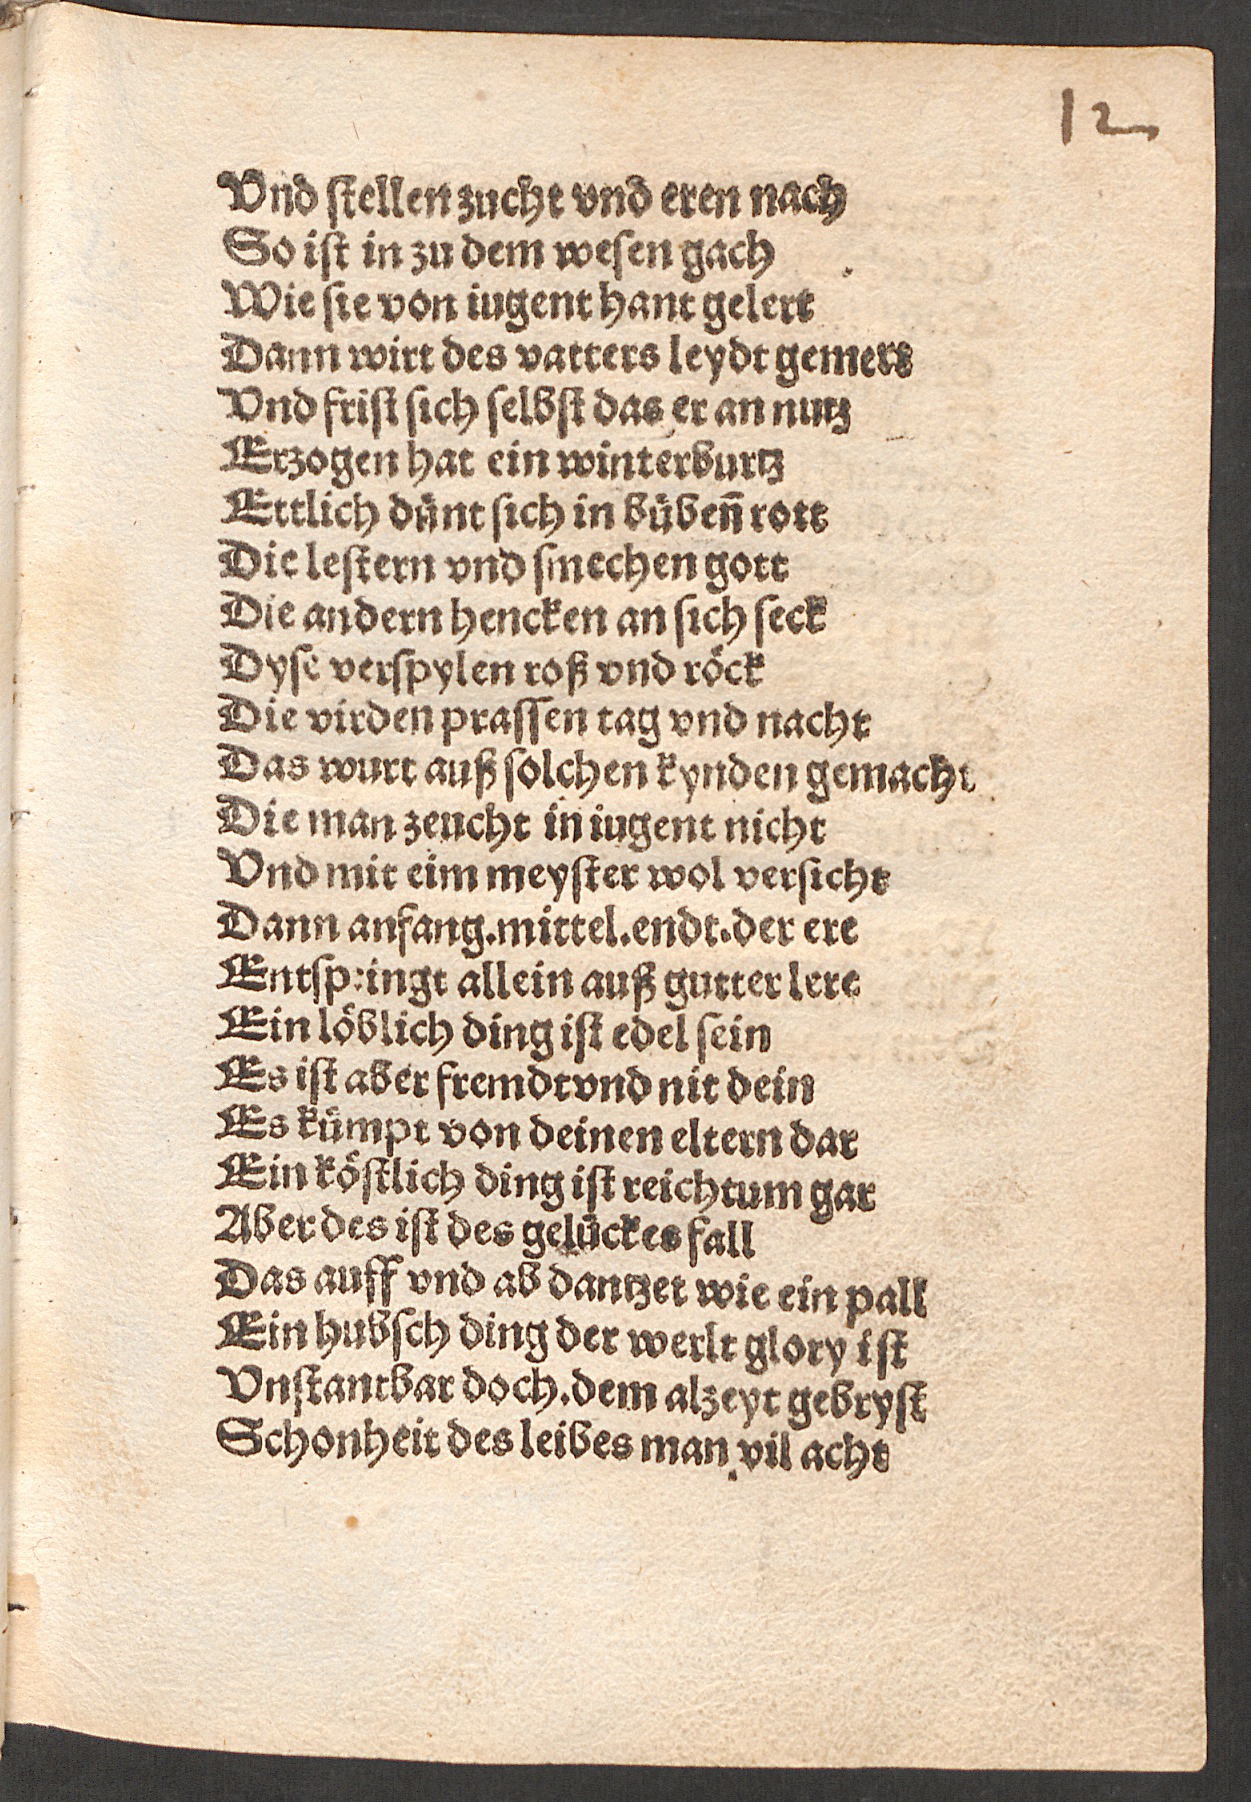 12
Vnd stellen zucht vnd eren nach
So ist in zu dem wesen gach
Wie sie von iugent hant gelert
Dann wirt des vatters leydt gemert
Vnd frist sich selbst das er an nutz
Erzogen hat ein winterburtz
Ettlich dünt sich in bübeñ rott
Die lestern vnd smechen gott
Die andern hencken an sich seck
Dyse verspylen roß vnd röck
Die virden prassen tag vnd nacht
Das wurt auß solchen kynden gemacht
Die man zeucht in iugent nicht
Vnd mit eim meyster wol versicht
Dann anfang.mittel.endt.der ere
Entspringt allein auß gutter lere
Ein löblich ding ist edel sein
Es ist aber fremdt vnd nit dein
Es kümpt von deinen eltern dar
Ein köstlich ding ist reichtum gar
Aber des ist des gelückes fall
Das auff vnd ab dantzet wie ein pall
Ein hubsch ding der werlt glory ist
Vnstantbar doch.dem alzeyt gebryst
Schonheit des leibes man vil acht